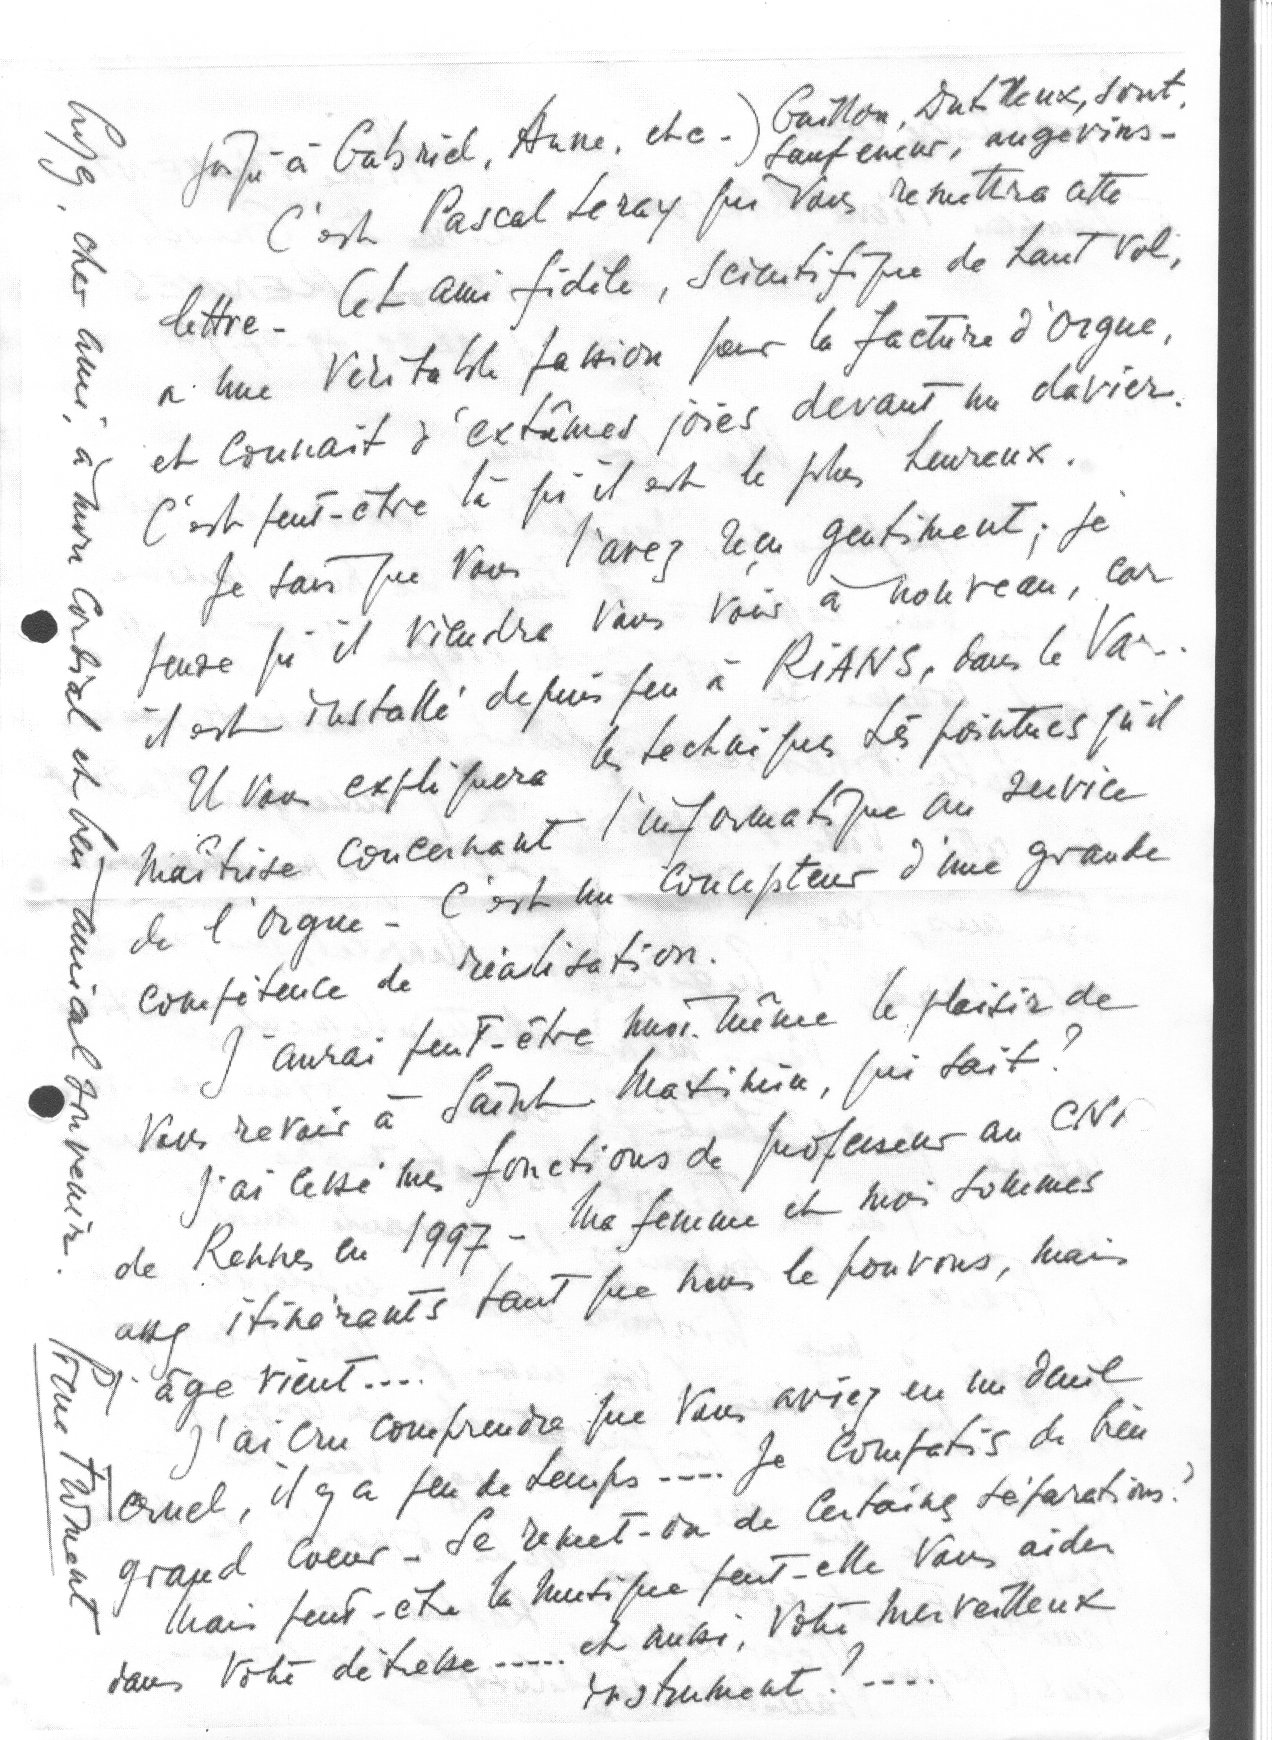 jusqu'à Gabriel, Anne, etc.) Guillou, Dutilleux, sont,
sauf erreur, angevins -
C'est Pascal Leray qui vous remettra cette
lettre - Cet ami fidèle, scientifique de haut vol,
a une véritable passion pour la facture d'orgue,
et connait d'extrêmes joies devant un clavier.
C'est peut-être là qu'il est le plus heureux.
Je sais que vous l'avez reçu gentiment; je
pense qu'il viendra vous voir à nouveau, car
il est installé depuis peu à RIANS, dans le Var..
Il vous expliquera les techniques très pointues qu'il
maîtrise concernant l'informatique au service
de l'orgue - C'est un concepteur d'une grande
compétence de réalisation.
J'aurai peut-être moi-même le plaisir de
vous revoir à Saint Maximin, qui sait?
J'ai cessé mes fonctions de professeur au CNR
de Rennes en 1997 - Ma femme et moi sommes
assez itinérants tant que nous le pouvons, mais
l'âge vient....
J'ai cru comprendre que vous aviez eu un deuil
cruel, il y a peu de temps .... Je compatis de bien
grand coeur - Se remet-on de certaines séparations?
Mais peut-être la musique peut-elle vous aider
dans votre détresse ..... et aussi, votre merveilleux
instrument? ....
cher ami, à mon cordial et bien amical souvenir.